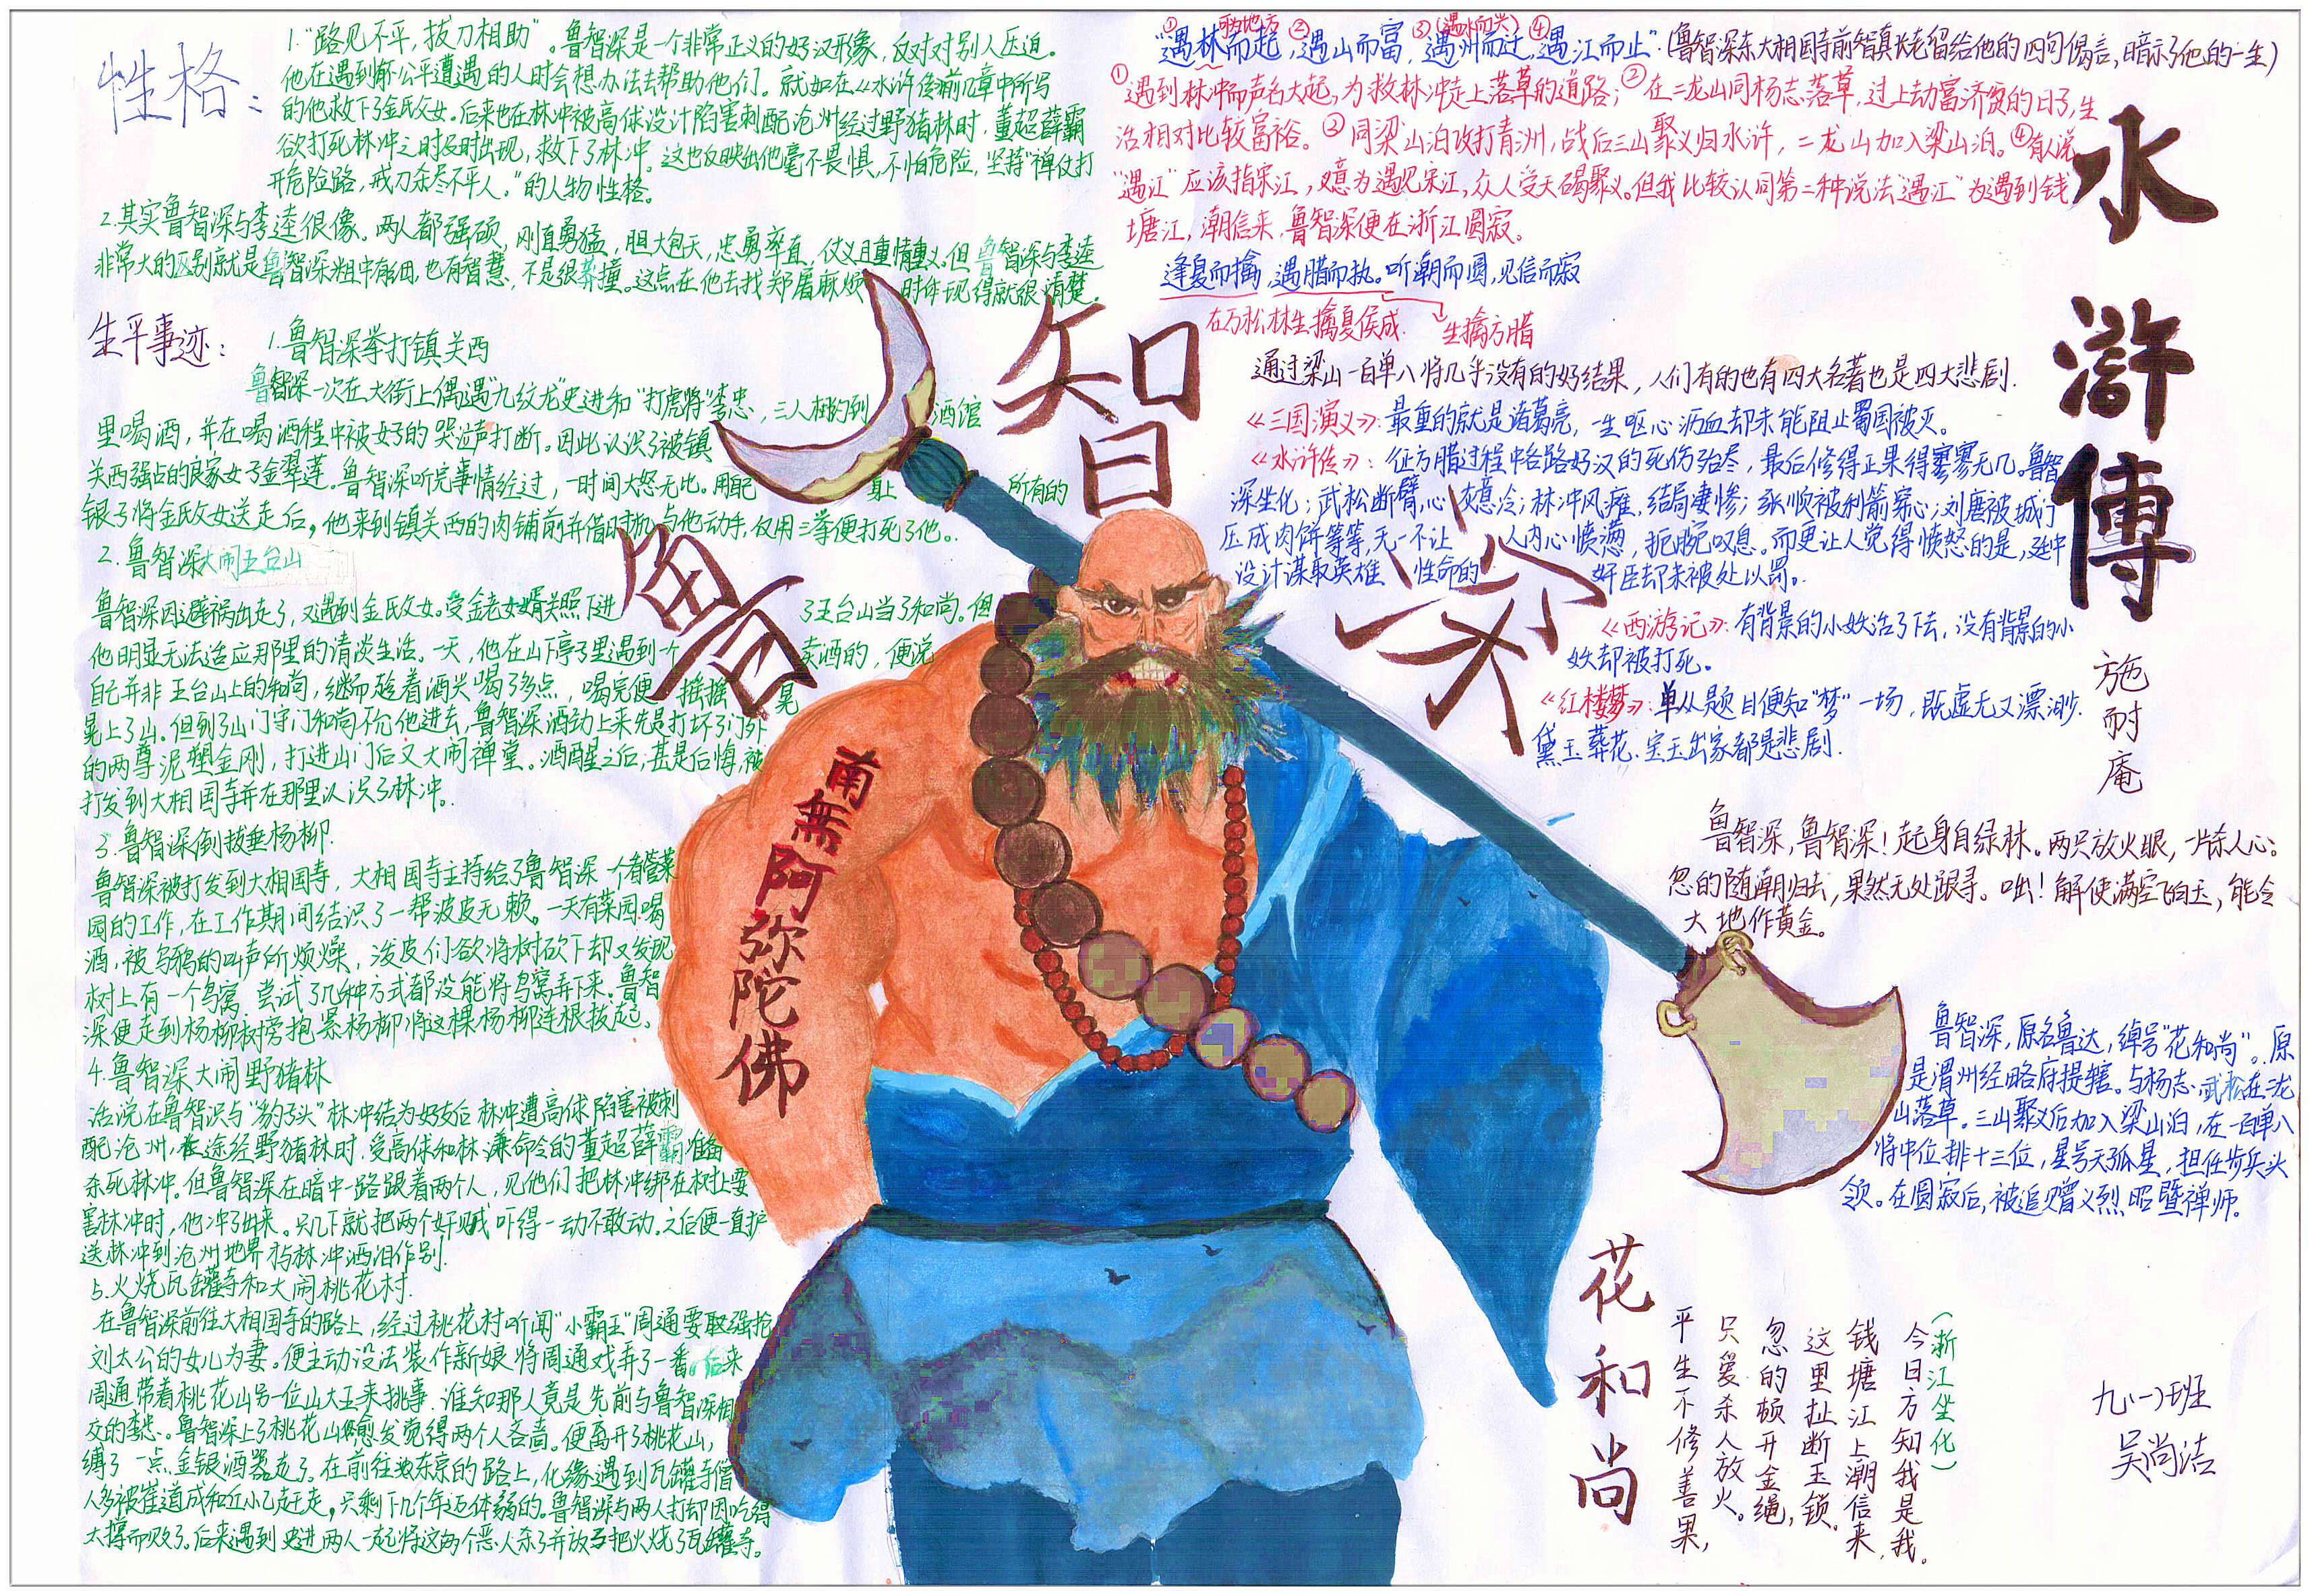 性格：
1.“路见不平，拔刀相助”。鲁智深是一个非常正义的好汉形象，反对对别人压迫。
他在遇到不公平遭遇的人时会想办法去帮助他们。就如在《水浒传》前几章中所写
的他救下了金氏父女。后来也在林冲被高俅设计陷害刺配沧州经过野猪林时，董超薛霸
欲打死林冲之时及时出现，救下了林冲。这也反映出他毫不畏惧，不怕危险，坚持“禅仗打
开危险路，戒刀杀尽不平人。”的人物性格。
2.其实鲁智深与李逵很像。两人都强硕，刚直勇猛，胆大包天，忠勇率直，仗义且重情重义。但鲁智深与李逵
非常大的区别就是鲁智深粗中有细，也有智慧，不是很莽撞。这点在他去找郑屠麻烦时体现得就很清楚。
生平事迹：
1.鲁智深拳打镇关西
鲁智深一次在大街上偶遇“九纹龙”史进和“打虎将”李忠，三人相约到酒馆
里喝酒，并在喝酒程中被女子的哭泣声打断。因此认识了被镇
关西强占的良家女子金翠莲。鲁智深听完事情经过，一时间大怒无比。用配身上所有的
银子将金氏父女送走后，他来到镇关西的肉铺前并借时机与他动手，仅用三拳便打死了他。
2.鲁智深大闹五台山
鲁智深因避祸出走了，又遇到金氏父女。受金老女婿关照下进了五台山当了和尚。但
他明显无法适应那里的清淡生活。一天，他在山下亭子里遇到一个卖酒的，便说
自己并非五台山上的和尚，继而趁着酒兴喝了多点，喝完便摇摇晃
晃上了山。但到了山门守门和尚不允他进去，鲁智深酒劲上来先是打坏了门外
的两尊泥塑金刚，打进山门后又大闹禅堂。酒醒之后，甚是后悔，被
打发到大相国寺并在那里认识了林冲。
3.鲁智深倒拔垂杨柳.
鲁智深被打发到大相国寺，大相国寺主持给了鲁智深一个看管菜
园的工作，在工作期间结识了一帮泼皮无赖。一天有菜园喝
酒，被乌鸦的叫声所烦燥，泼皮们欲将树砍下却又发现
树上有一个鸟窝，尝试了几种方式都没能将鸟窝弄下来。鲁智
深便走到杨柳树旁抱紧杨柳将这棵杨柳连根拔起。
4.鲁智深大闹野猪林
话说在鲁智深与“豹子头”林冲结为好友后林冲遭高俅陷害被刺
配沧州，在途经野猪林时，受高俅和林谦命令的董超薛霸准备
杀死林冲。但鲁智深在暗中一路跟着两个人，见他们把林冲绑在树上要
害林冲时，他冲了出来。只几下就把两个奸贼吓得一动不敢动。之后便一直护
送林冲到沧州地界才与林冲洒泪作别.
5.火烧瓦罐寺和大闹桃花村.
在鲁智深前往大相国寺的路上，经过桃花村听闻“小霸王”周通要取强抢
刘太公的女儿为妻。便主动设法装作新娘将周通戏弄了一番。后来
周通带着桃花山另一位山大王来挑事，谁知那人竟是先前与鲁智深相
交的李忠。鲁智深上了桃花山愈发觉得两个人吝啬。便离开了桃花山，
缚了一点金银酒器走了。在前往东京的路上，化缘遇到瓦罐寺僧
人多被崔道成和丘小乙赶走，只剩下几个年迈体弱的。鲁智深与两人打却因吃得
太撑而败了。后来遇到史进两人一起将这两个恶人杀了并放了把火烧了瓦罐寺。
“遇林而起，遇山而富，遇州而迁，遇江而止”.（鲁智深东大相国寺前智真长老留给他的四句偈言，暗示了他的一生）
①遇到林冲而声名大起，为救林冲走上落草的道路；②在二龙山同杨志落草，过上劫富济贫的日子，生
活相对比较富裕。③同梁山泊攻打青洲，战后三山聚义归水浒，二龙山加入梁山泊。④有人说
“遇江”应该指宋江，意为遇见宋江，众人受天碣聚义。但我比较认同第二种说法“遇江”为遇到钱
塘江，潮信来，鲁智深便在浙江圆寂。
逢夏而擒，遇腊而执。听潮而圆，见信而寂
在万松林生擒夏侯成.
生擒方腊
通过梁山一百单八将几乎没有的好结果，人们有的也有四大名著也是四大悲剧.
《三国演义》：最重的就是诸葛亮，一生呕心沥血却未能阻止蜀国被灭。
《水浒传》：征方腊过程中各路好汉的死伤殆尽，最后修得正果得寥寥无几。鲁智
深坐化；武松断臂，心灰意冷；林冲风瘫，结局凄惨；张顺被利箭穿心；刘唐被城门
压成肉饼等等，无一不让人内心愤懑，扼腕叹息。而更让人觉得愤怒的是，廷中
设计谋取英雄性命的奸臣却未被处以罚。
《西游记》：有背景的小妖活了下去，没有背景的小
妖却被打死。
《红楼梦》：单从题目便知“梦”一场，既虚无又漂渺.
黛玉葬花、宝玉出家都是悲剧.
鲁智深
水浒傳
施耐庵
南無阿弥陀佛
鲁智深，鲁智深！起身自绿林。两只放火眼，一片杀人心。
忽的随潮归去，果然无处跟寻。咄！解使满空飞白玉，能令
大地作黄金。
鲁智深，原名鲁达，绰号“花和尚”。原
是渭州经略府提辖。与杨志、武松在二龙
山落草。三山聚义后加入梁山泊，在一百单八
将中位排十三位，星号天孤星，担任步兵头
领。在圆寂后，被追赠义烈昭暨禅师。
花和尚
（浙江坐化）
今日方知我是我。
钱塘江上潮信来，
这里扯断玉锁。
忽的顿开金绳，
只爱杀人放火。
平生不修善果，
九（一）班
吴尚洁